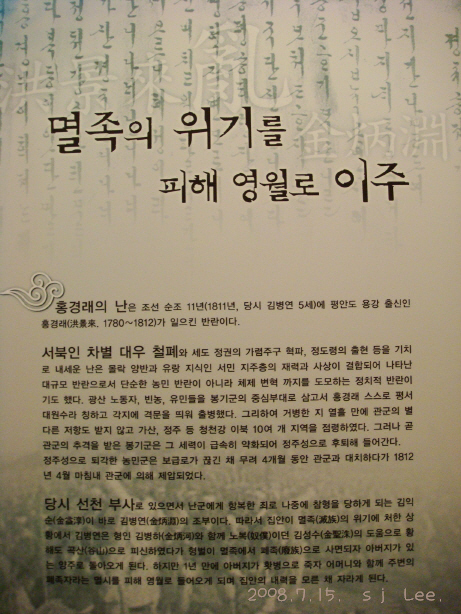 洪景來 亂
金炳淵
멸족의 위기를
피해 영월로 이주
홍경래의 난은 조선 순조 11년(1811년, 당시 김병연 5세)에 평안도 용강 출신인
홍경래(洪景來, 1780~1812)가 일으킨 반란이다.
서북인 차별 대우 철폐와 세도 정권의 가렴주구 혁파, 정도령의 출현 등을 기치
로 내세운 난은 몰락 양반과 유랑 지식인 서민 지주층의 재력과 사상이 결합되어 나타난
대규모 반란으로서 단순한 농민 반란이 아니라 체제 변혁 까지를 도모하는 정치적 반란이
기도 했다. 광산 노동자, 빈농, 유민들을 봉기군의 중심부대로 삼고서 홍경래 스스로 평서
대원수라 칭하고 각지에 격문을 띄워 출병했다. 그리하여 거병한 지 열흘 만에 관군의 별
다른 저항도 받지 않고 가산, 정주 등 청천강 이북 10여 개 지역을 점령하였다. 그러나 곧
관군의 추격을 받은 봉기군은 그 세력이 급속히 약화되어 정주성으로 후퇴해 들어간다.
정주성으로 퇴각한 농민군은 보급로가 끊긴 채 무려 4개월 동안 관군과 대치하다가 1812
년 4월 마침내 관군에 의해 제압되었다.
당시 선천 부사로 있으면서 난군에게 항복한 죄로 나중에 참형을 당하게 되는 김익
순(金益淳)이 바로 김병연(金炳淵)의 조부이다. 따라서 집안이 멸족(滅族)의 위기에 처한 상
황에서 김병연은 형인 김병하(金炳河)와 함께 노복(奴僕)이던 김성수(金聖洙)의 도움으로 황
해도 곡산(谷山)으로 피신하였다가 형벌이 멸족에서 폐족(廢族)으로 사면되자 아버지가 있
는 양주로 돌아오게 된다. 하지만 1년 만에 아버지가 홧병으로 죽자 어머니와 함께 주변의
폐족자라는 멸시를 피해 영월로 들어오게 되며 집안의 내력을 모른 채 자라게 된다.
2008.7.15. s j Lee.